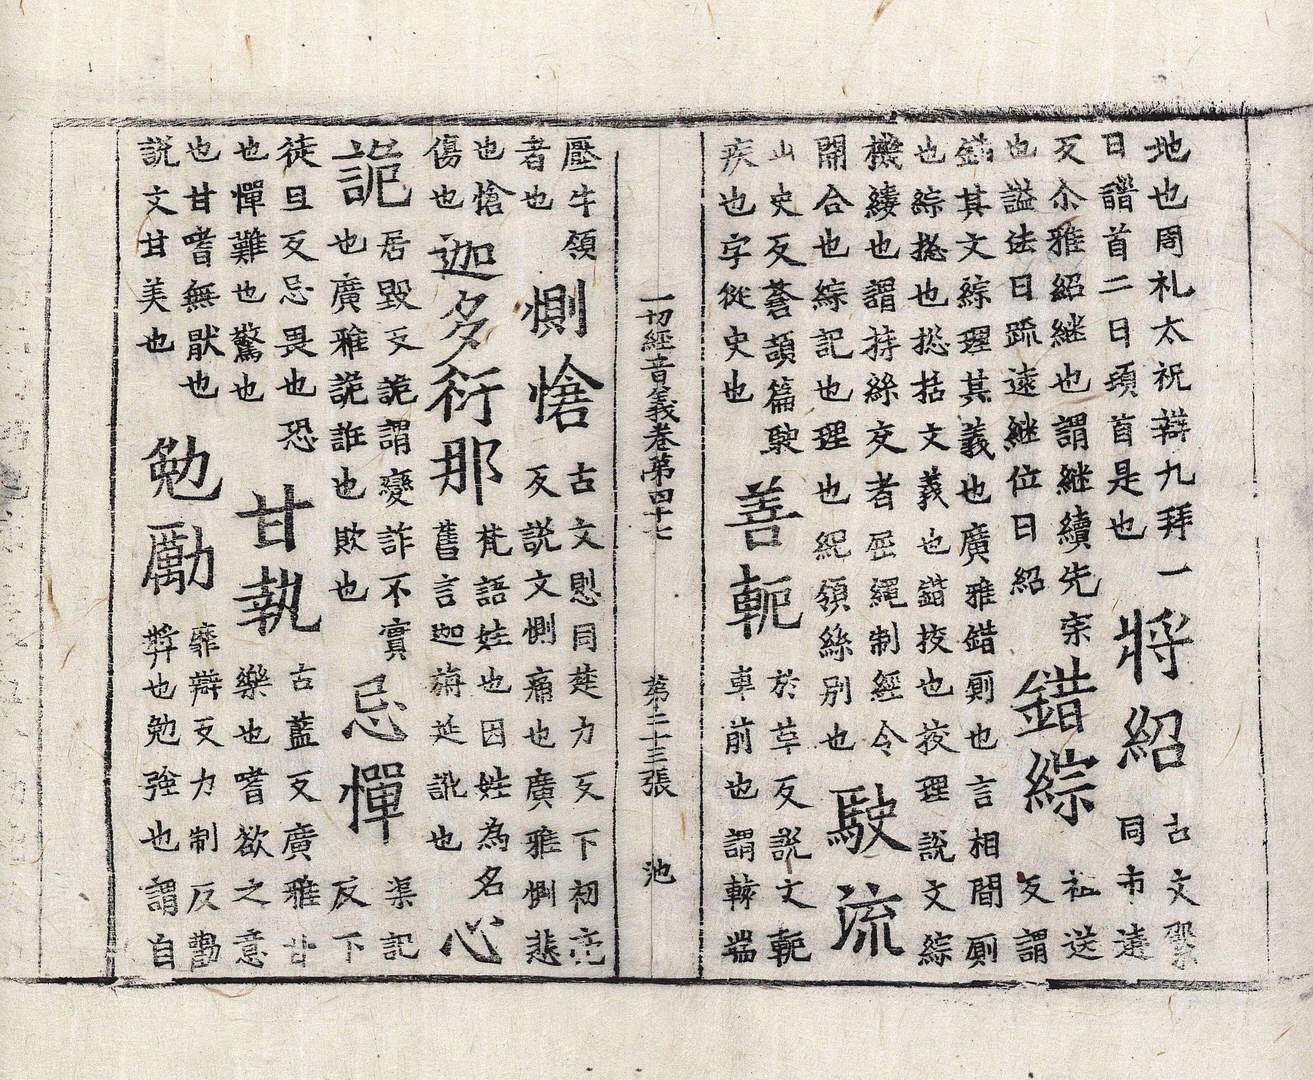 地也周礼太祝辯九拜一
曰䭬首二曰頓首是也
將紹
古文
同市遶
反尒雅紹継也謂継續先宗
也謚法曰踈遠継位曰紹
錯綜
送
反謂
錯其文綜理其義也廣雅錯厠也言相間厠
也綜捴也捴括文義也錯挍也挍理說文綜
機縷也謂持絲交者屈繩制經令
開合也綜記也理也紀領絲別也
駛流
山史反蒼頡篇駛
疾也字從史也
善軛
於革反說文軛
車前也謂轅端
一切經音義卷第四十七 第二十三張 池
壓牛領
者也
惻愴
古文同楚力反下初亮
反說文惻痛也廣雅惻悲
也愴
傷也
迦多衍那
梵語姓也因姓為名
舊言迦旃延訛也
心
詭
居毀反詭謂變詐不實
也廣雅詭誑也欺也
忌憚
渠記
反下
徒旦反忌畏也恐
也憚難也驚也
甘執
古藍反廣雅甘
樂也嗜欲之意
也甘嗜無猒也
說文甘美也
勉勵
靡辯反力制反勸
弉也勉強也謂自